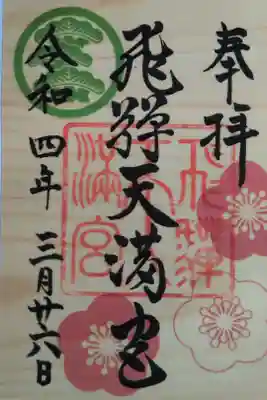 奉拝
飛騨天満宮
令和四年三月廿六日
飛騨
天
満宮